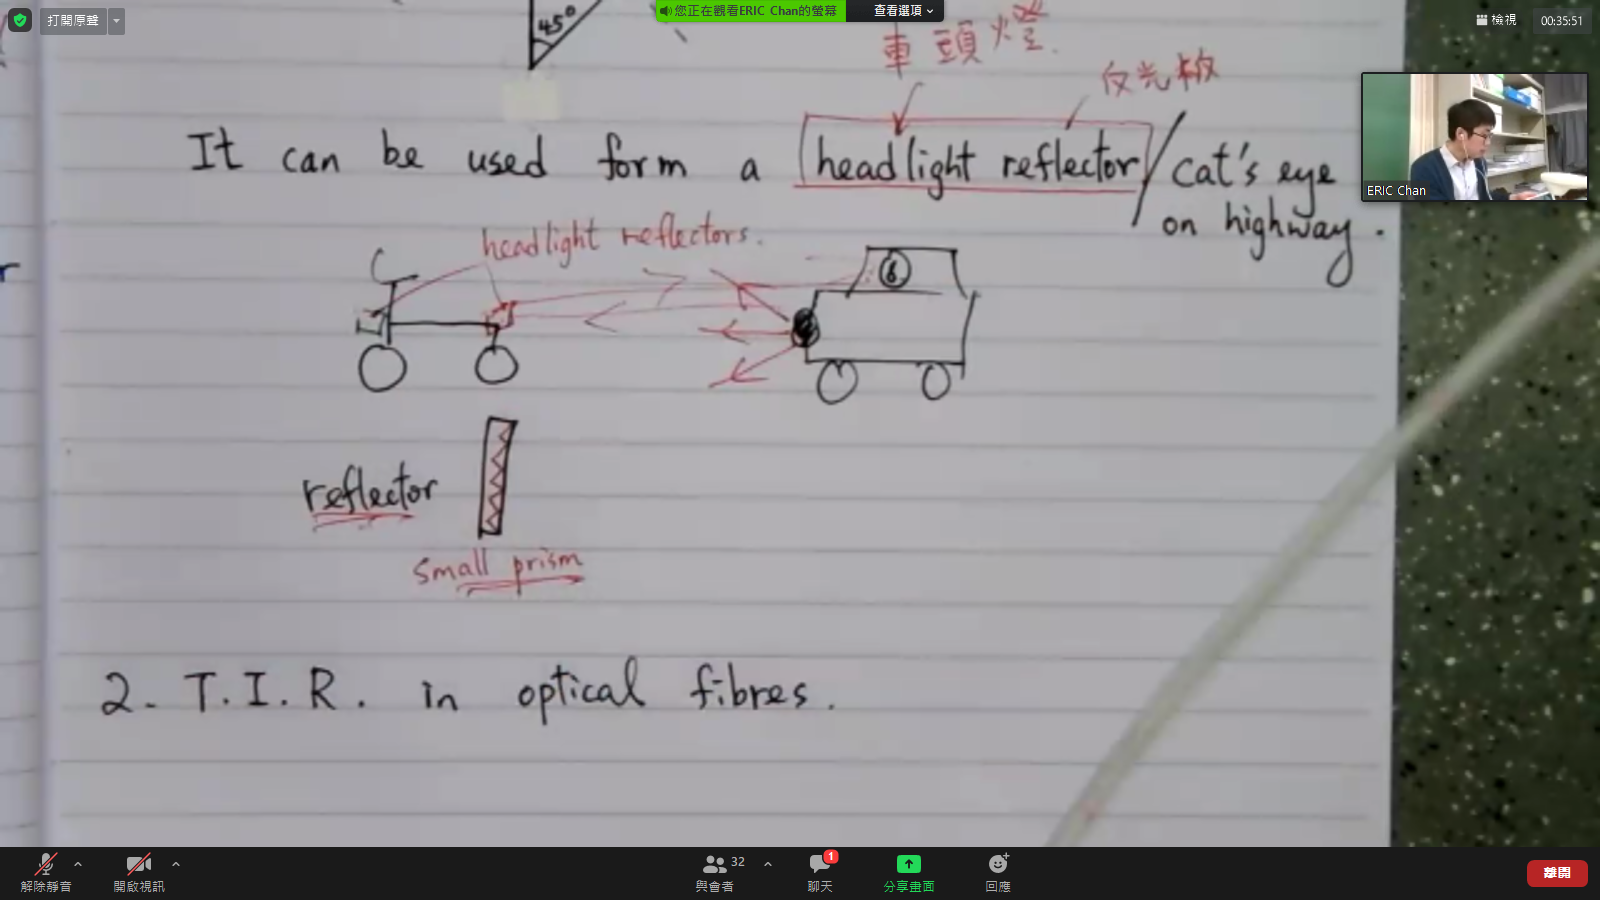 打開原聲
您正在觀看ERIC Chan的螢幕
查看選項
檢視
00:35:51
45°
車頭燈
反光板
It can be used form a headlight reflector / cat's eye
on highway.
ERIC Chan
headlight reflectors.
6
reflector
small prism
2. T.I.R. in optical fibres.
解除靜音
開啟視訊
32
與會者
1
聊天
分享畫面
回應
離開